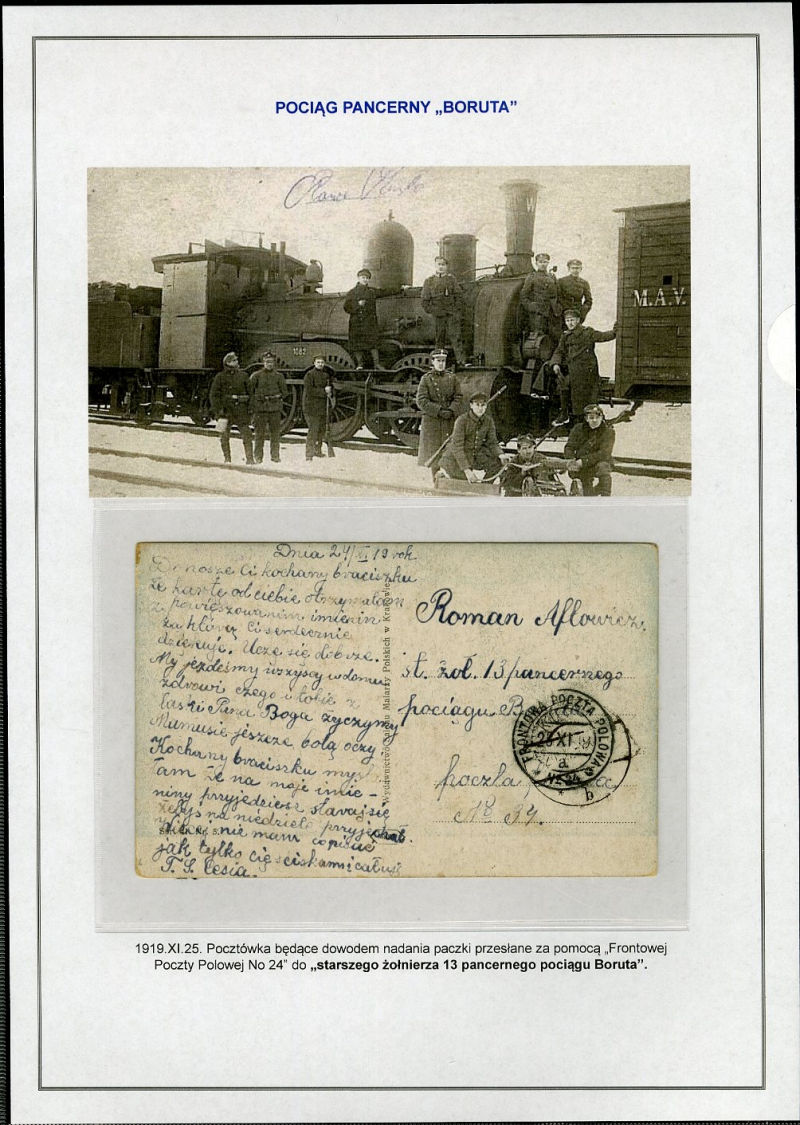 POCIĄG PANCERNY „BORUTA”
M.A.V.
1082
Dnia 24/XI 19 rok
Donoszę Ci kochany braciszku
że kartę od ciebie otrzymałam
z powięszowaniem imienin
za którą Ci serdecznie
dziękuję. Uczę się dobrze.
My jezdeśmy wszyscy w domu
zdrowi czego i tobie z
łaski Pana Boga życzymy
Mamusie jeszcze bolą oczy
Kochany braciszku myś
łam że na moje imie-
niny przyjedziesz staraj się
żebyś na niedziele przyjechał.
nie mam co pisać
jak tylko cię ściskam i całuję
Cesia.
Wydawnictwo Salonu Malarzy Polskich w Krakowie
Roman Aflowicz.
st. żoł. 13 pancernego
pociągu B
poczta
No 34.
FRONTOWA POCZTA POLOWA
XI 19
a
No 24
b
1919.XI.25. Pocztówka będące dowodem nadania paczki przesłane za pomocą „Frontowej
Poczty Polowej No 24” do „starszego żołnierza 13 pancernego pociągu Boruta”.